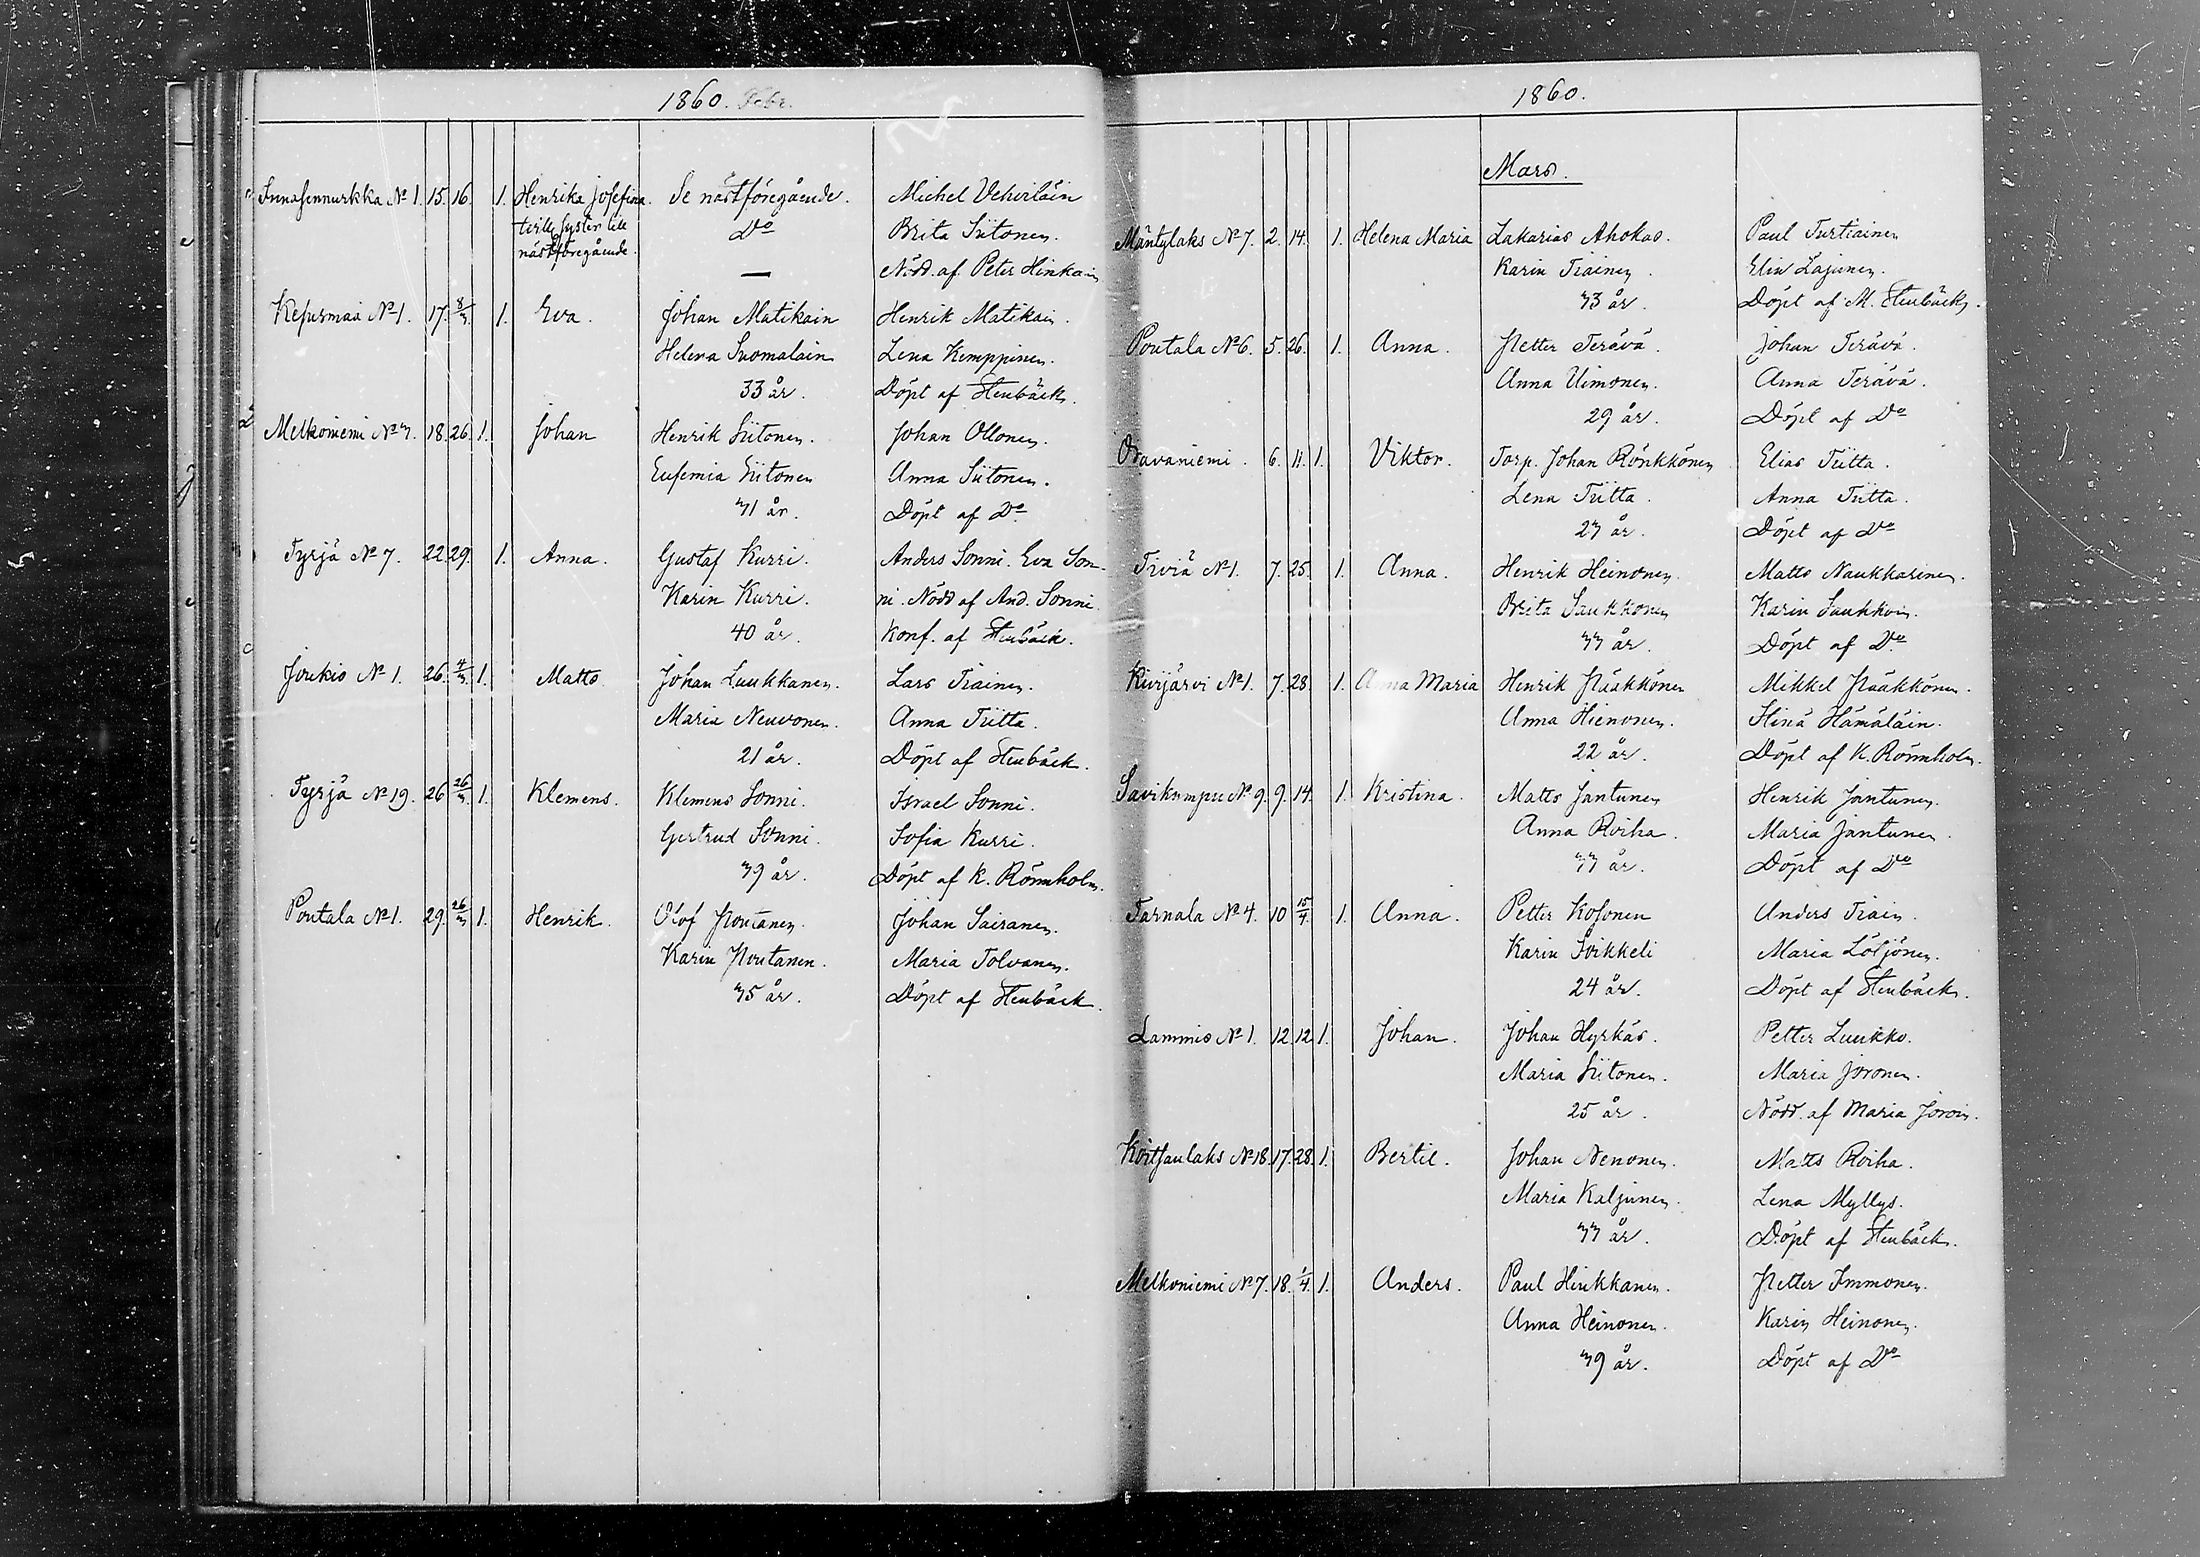 1860. Febr.
Innasennurkka No 1. 15. 16. 1. Henrika Josefina. Se nästföregående. Michel Vehviläin
tvillingsyster till Do Brita Siitonen.
nästföregående. — Nöd. af Peter Hinkain
Kesusmaa No 1. 17. 8/3. 1. Eva. Johan Matikain Henrik Matikain.
Helena Suomalain Lena Kemppinen.
33 år. Döpt af Stenbäck.
Melkoniemi No 3. 18. 26. 1. Johan Henrik Siitonen. Johan Ollonen.
Eufemia Siitonen Anna Siitonen.
31 år. Döpt af Do
Tyrjä No 7. 22. 29. 1. Anna. Gustaf Kurri. Anders Sonni. Eva Son-
Karin Kurri. ni. Nödd af And. Sonni.
40 år. Konf. af Stenbäck.
Joukio No 1. 26. 4/3. 1. Matts Johan Luukkanen. Lars Tiainen.
Maria Neuvonen. Anna Tiitta.
21 år. Döpt af Stenbäck.
Tyrjä No 19. 26 26/3. 1. Klemens. Klemens Sonni. Israel Sonni.
Gertrud Sonni. Sofia Kurri.
39 år. Döpt af K. Rönnholm.
Poutala No 1. 29. 26/3 1. Henrik. Olof Poutanen. Johan Sairanen.
Karin Poutanen. Maria Tolvanen.
35 år. Döpt af Stenbäck.
1860.
Mars.
Mäntylaks No 7. 2. 14. 1. Helena Maria Zakarias Ahokas. Paul Turtiainen
Karin Tiainen Elin Lajunen.
33 år. Döpt af M. Stenbäck.
Poutala No 6. 5. 26. 1. Anna. Petter Terävä. Johan Terävä.
Anna Uimonen. Anna Terävä.
29 år. Döpt af Do
Oravaniemi. 6. 11. 1. Viktor. Torp. Johan Rönkkönen Elias Tiitta.
Lena Tiitta. Anna Tiitta.
23 år. Döpt af Do
Tiviä No 1. 7. 25. 1. Anna. Henrik Heinonen. Matts Naukkarinen.
Brita Saukkonen Karin Saukkoin.
33 år. Döpt af Do
Kivijärvi No 1. 7. 28. 1. Anna Maria Henrik Pääkkönen Mikkel Pääkkönen.
Anna Hienonen. Stina Hämäläin.
22 år. Döpt af K. Rönnholm.
Savikumpu No 9. 9. 14. 1. Kristina. Matts Jantunen Henrik Jantunen.
Anna Roiha. Maria Jantunen.
33 år. Döpt af Do
Tarnala No 4. 10 15/4. 1. Anna. Petter Kosonen Anders Tiain.
Karin Soikkeli Maria Lötjönen.
24 år. Döpt af Stenbäck.
Lammio No 1. 12. 12. 1. Johan. Johan Hyrkäs. Petter Luukko.
Maria Siitonen. Maria Joronen.
25 år. Nödd. af Maria Joroin.
Koitsanlaks No 18. 17. 28. 1. Bertil. Johan Nenonen. Matts Roiha.
Maria Kaljunen. Lena Myllys.
33 år. Döpt af Stenbäck.
Melkoniemi No 7. 18. 1/4. 1. Anders. Paul Hinkkanen. Petter Immonen.
Anna Heinonen. Karin Heinonen.
39 år. Döpt af Do